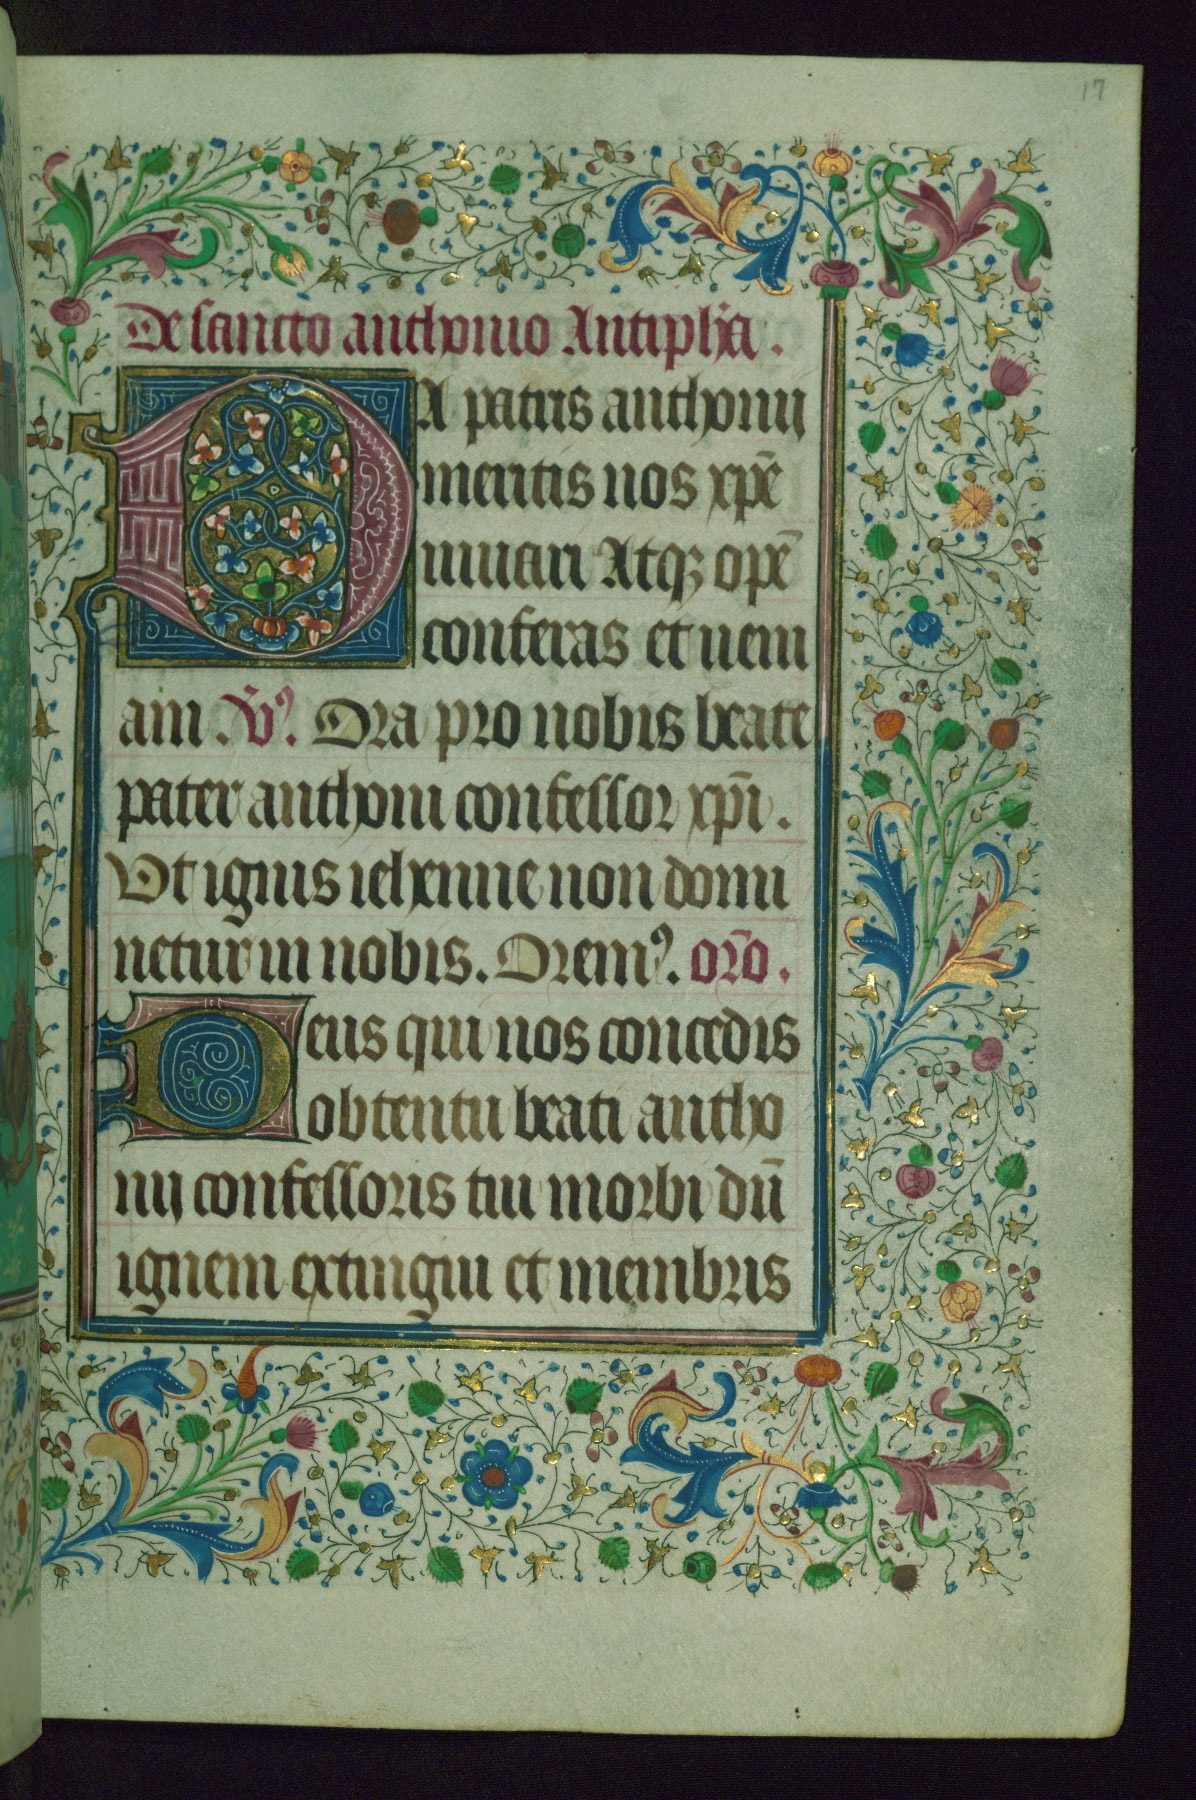 17
De sancto anthonio Antiph̄a.
DA patris anthonij
meritis nos xp̄e
iuuari Atqꝫ opē
conferas et ueni
am. V̄ꝰ. Ora pro nobis beate
pater anthoni confessor xp̄i.
Vt ignis iehenne non domi
netur in nobis. Oremꝰ. or̄o.
Deus qui nos concedis
obtentu beati antho
nij confessoris tui morbidū
ignem extingui et membris